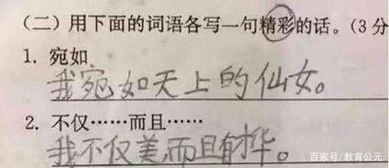 （二）用下面的词语各写一句精彩的话。（3分
1. 宛如
我宛如天上的仙女。
2. 不仅……而且……
我不仅美而且有才华。
百家号/教育公元